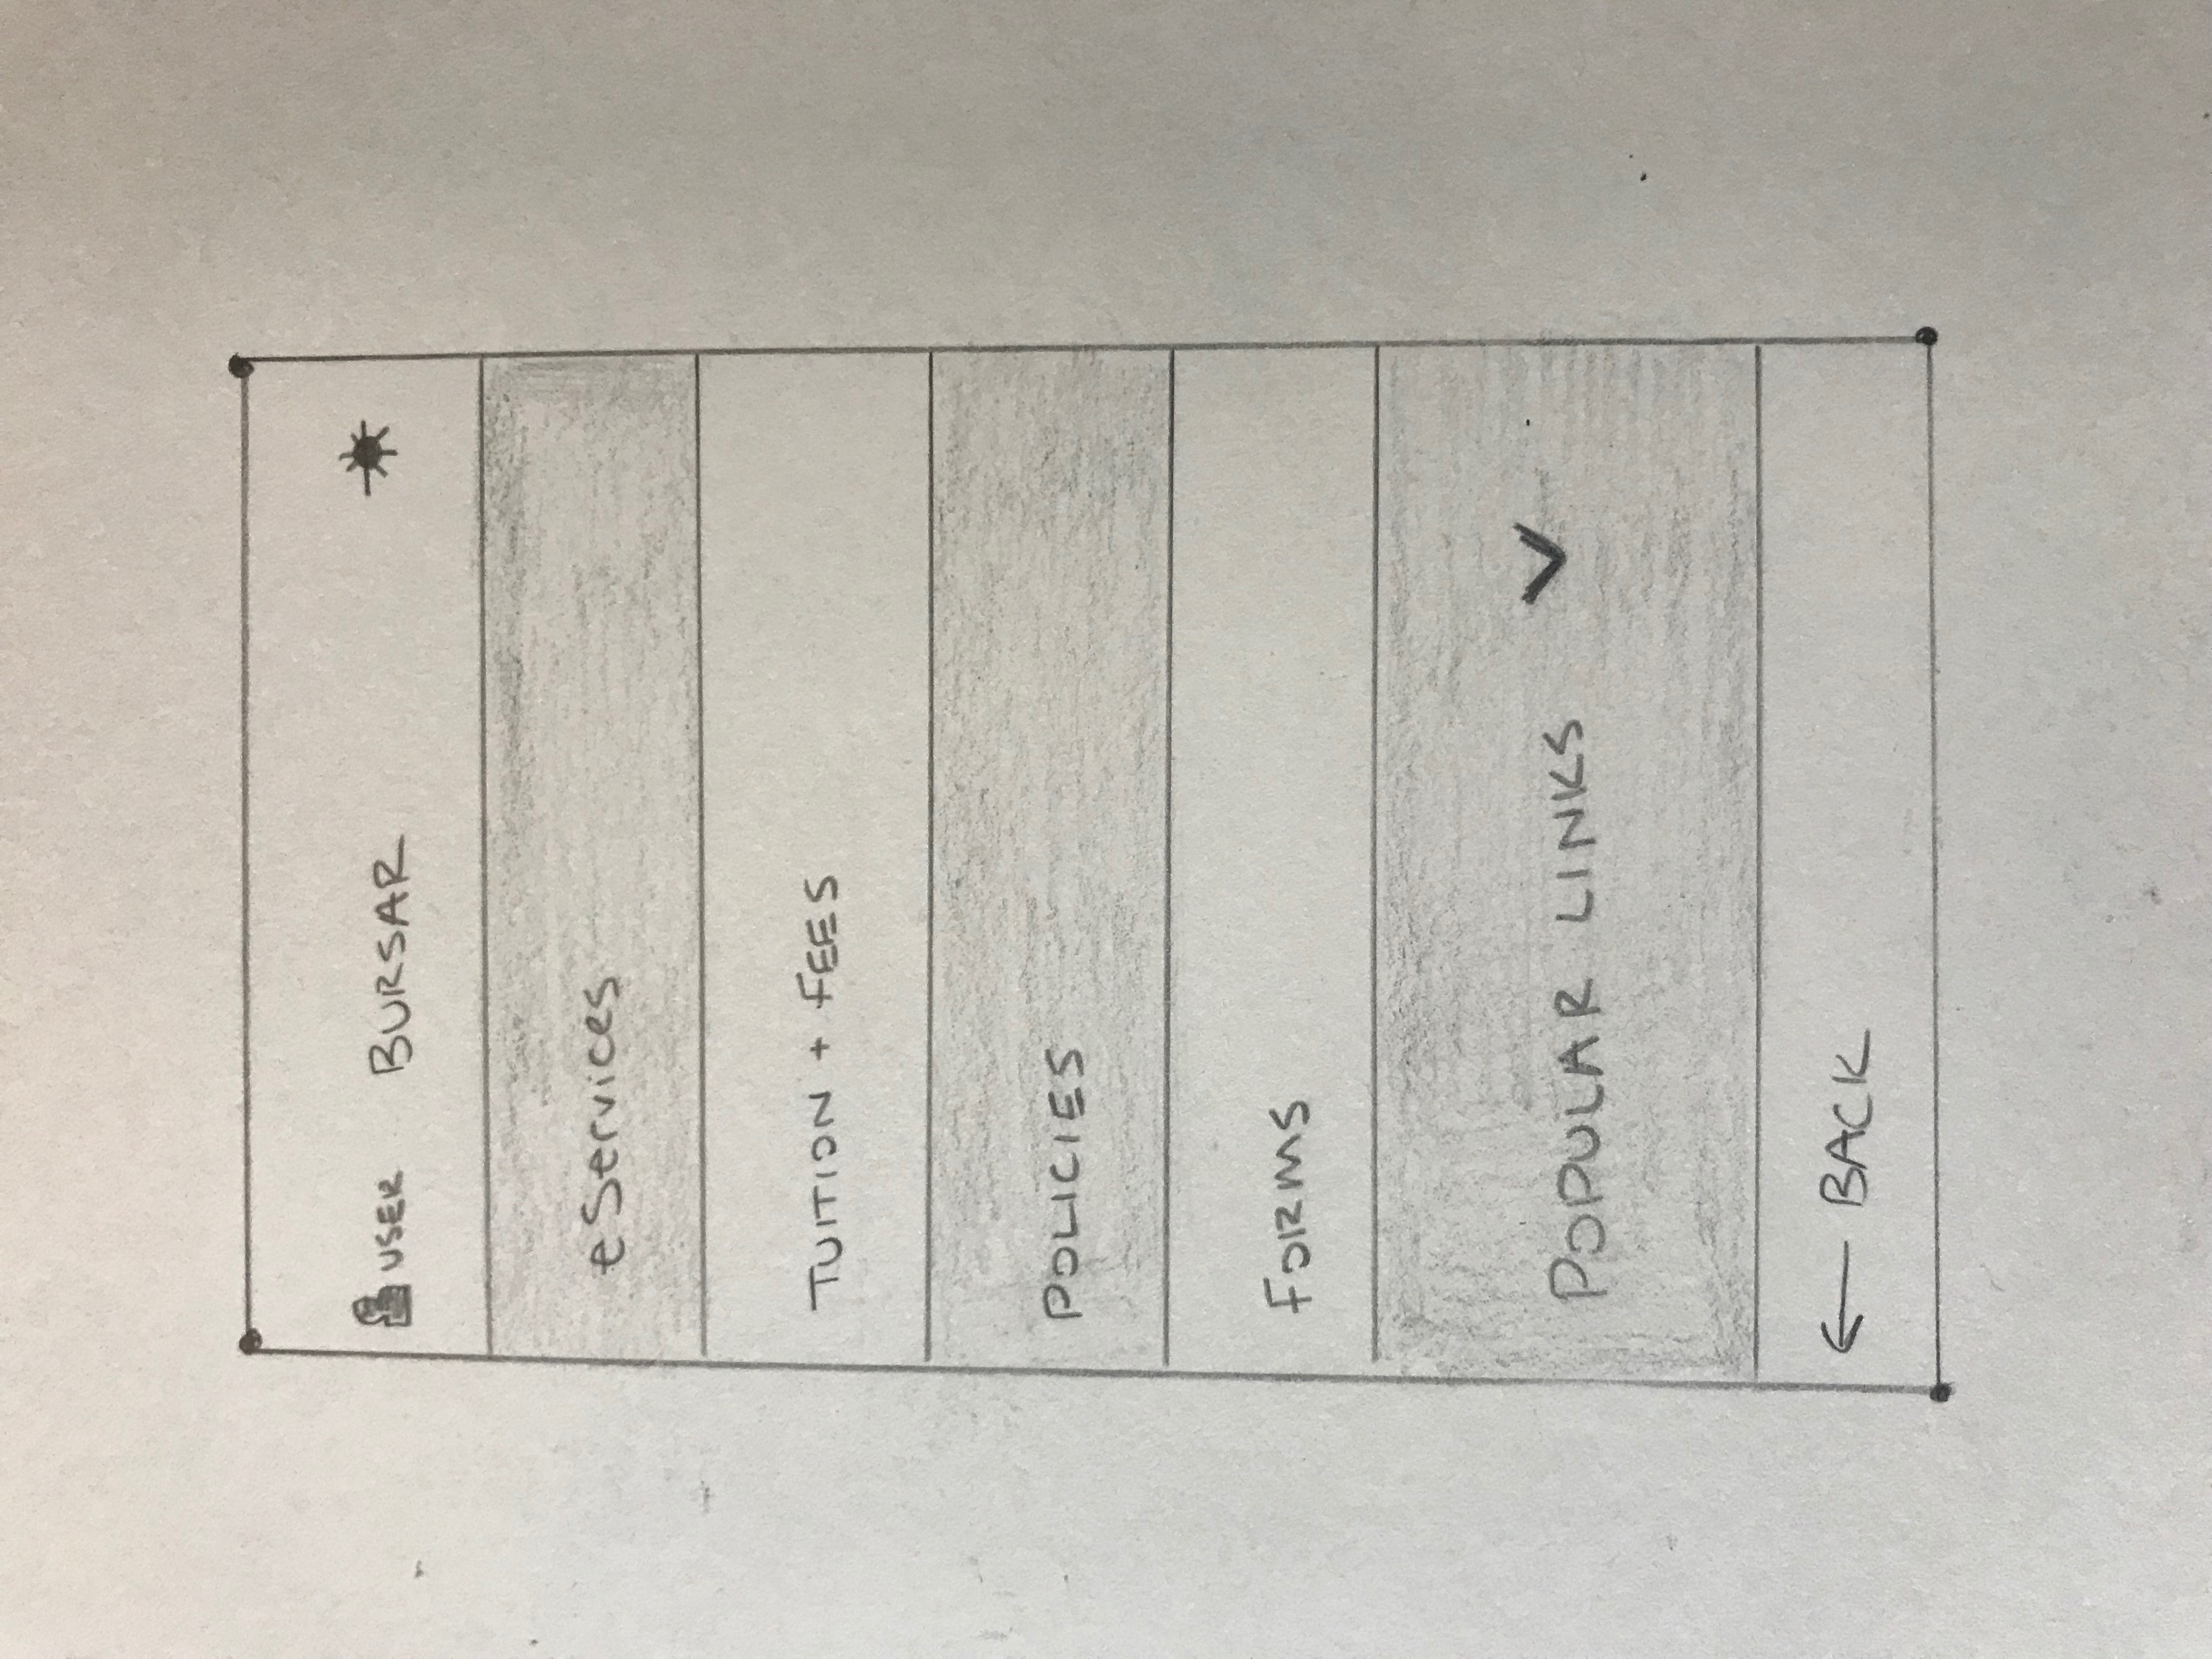 USER BURSAR
eServices
TUITION + FEES
POLICIES
FORMS
POPULAR LINKS
BACK